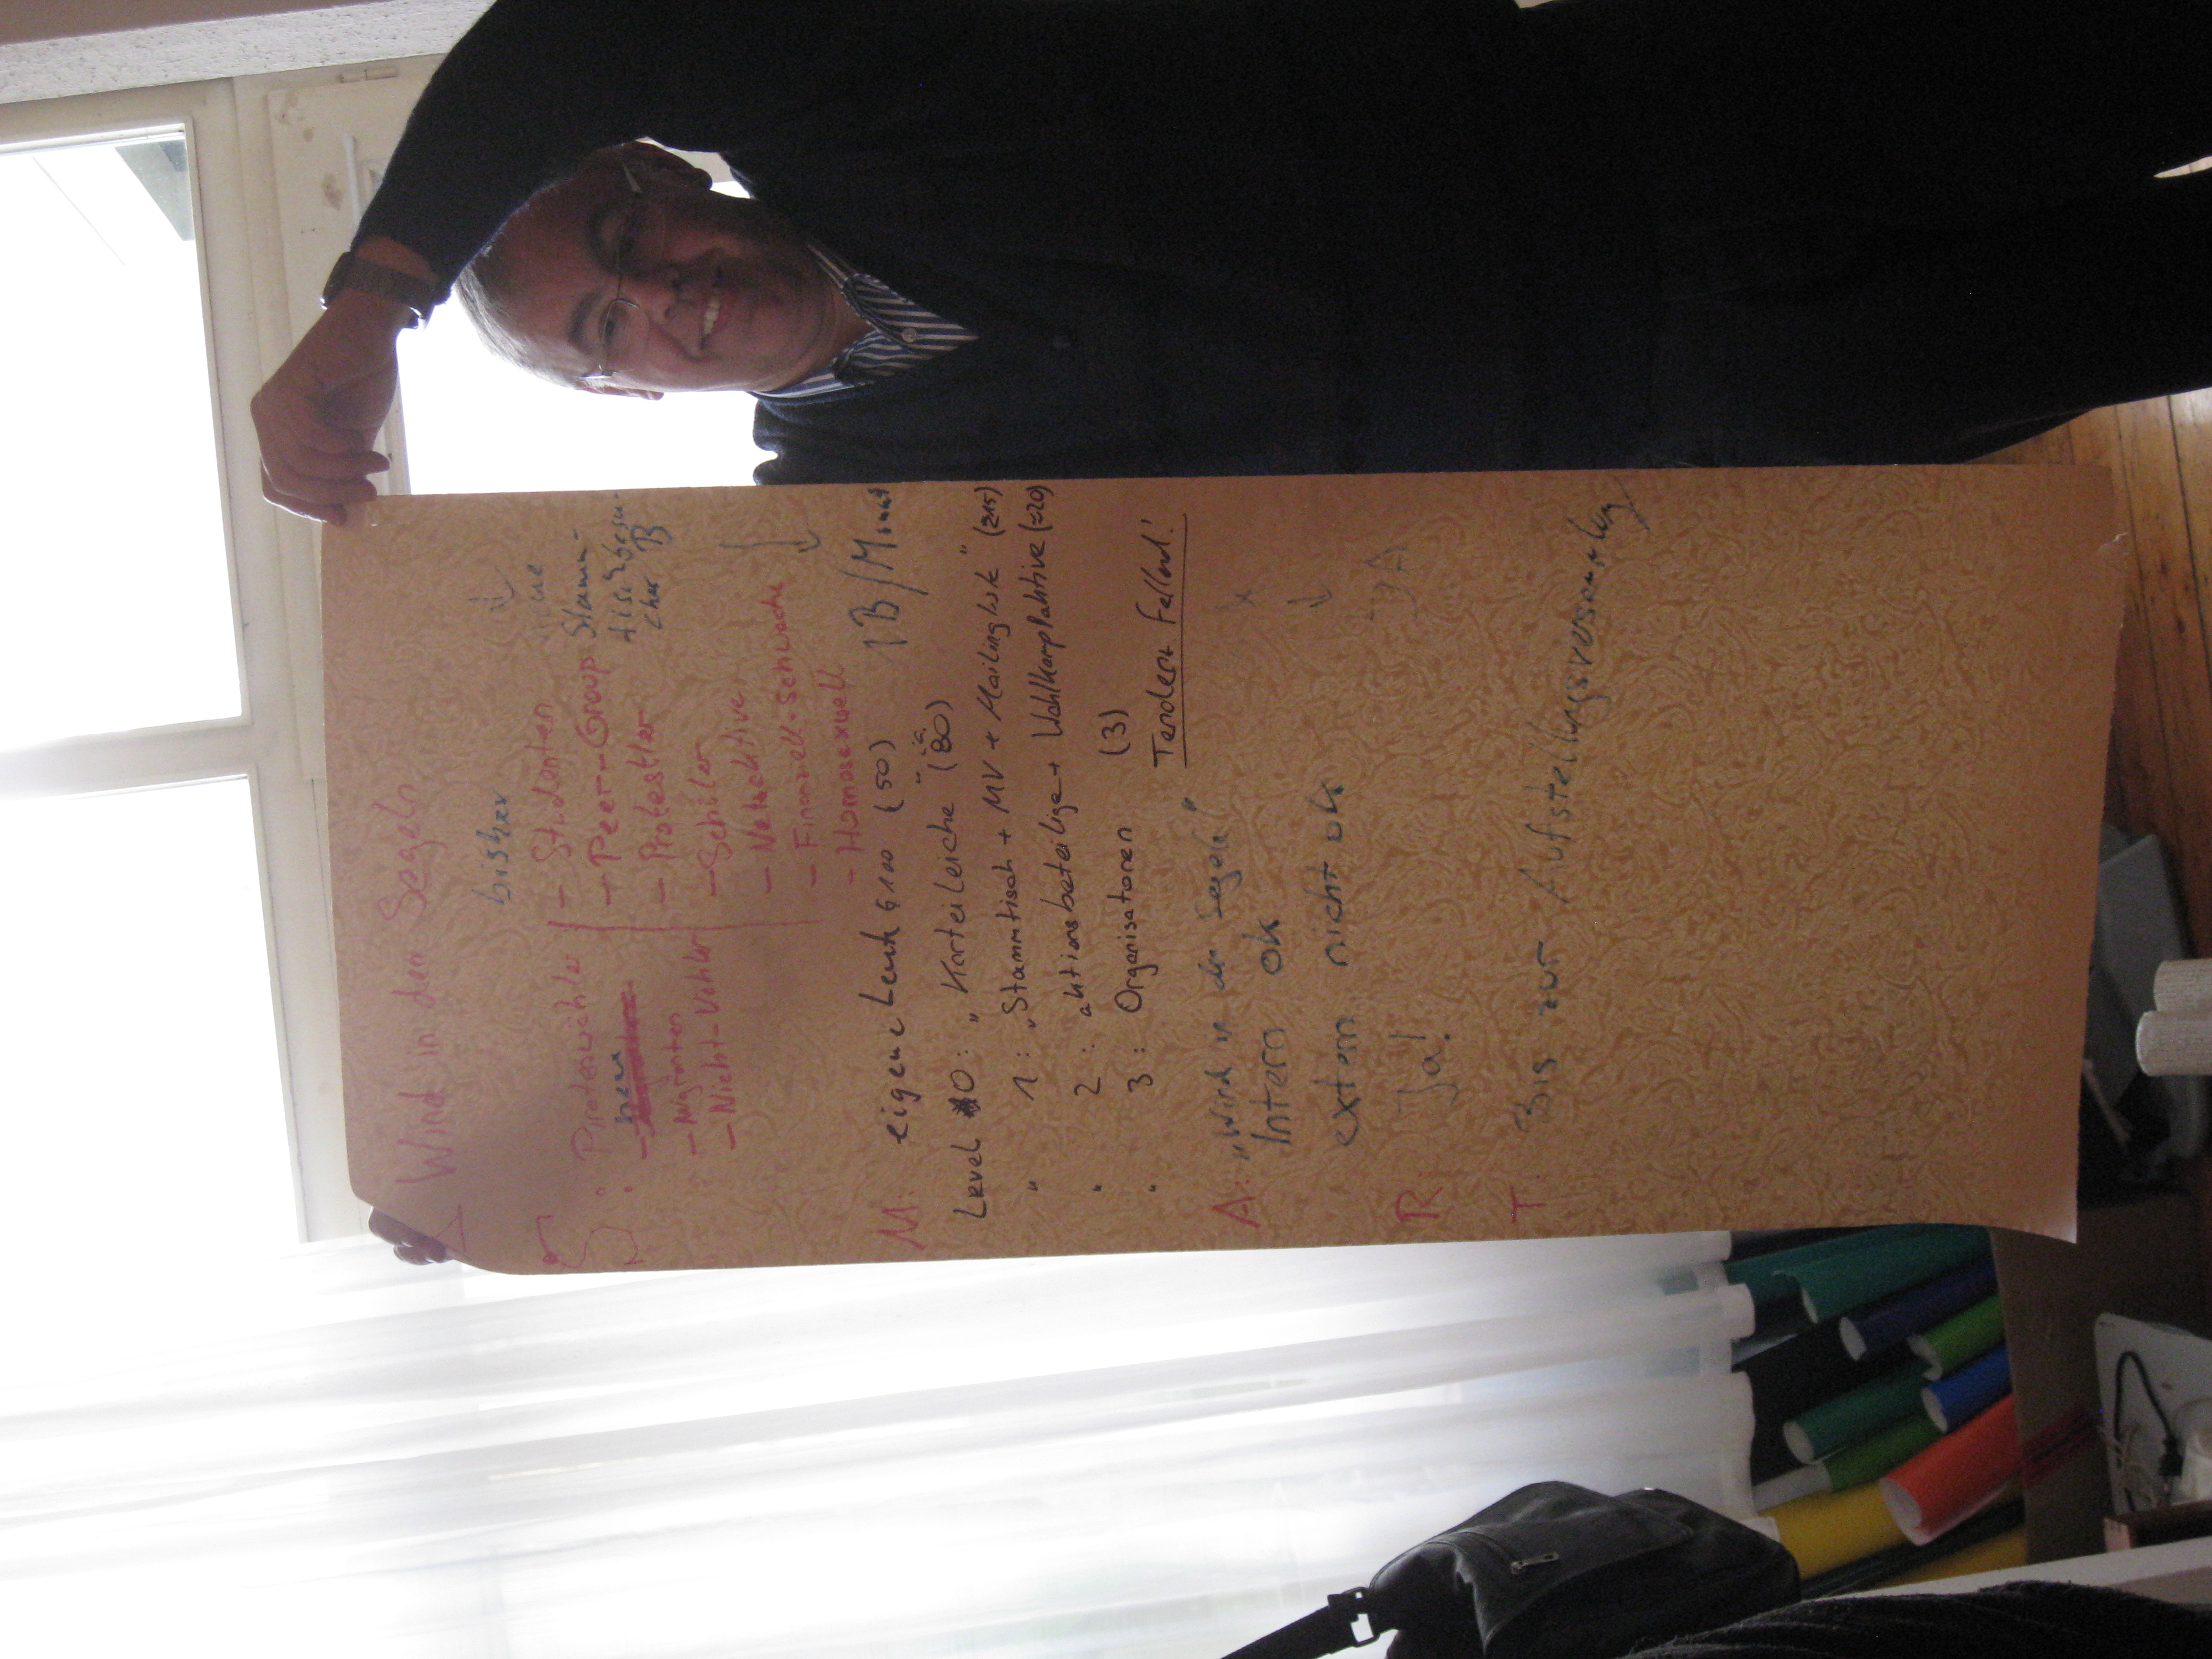 Wind in den Segeln
bisher
S: Piratenwähler
- Studenten
- Peer-Group
- Protestler
- Schüler
- Netzaktive
- Finanziell-Schwache
- Homosexuell
neu
- Migranten
- Nicht-Wähler
neue
Stamm-
tischbesu-
cher
M: eigene Leute (50)
1B/Monat
Level 0: "Karteileiche" (80)
" 1: "Stammtisch + MV + Mailingliste" (≥15)
" 2: aktionsbeteiligt + Wahlkampfaktive (≈20)
" 3: Organisatoren (3)
Tendenz Fallend!
A: "Wind in den Segeln"
Intern ok
extern nicht ok
R Ja!
T: Bis zur Aufstellungsversammlung